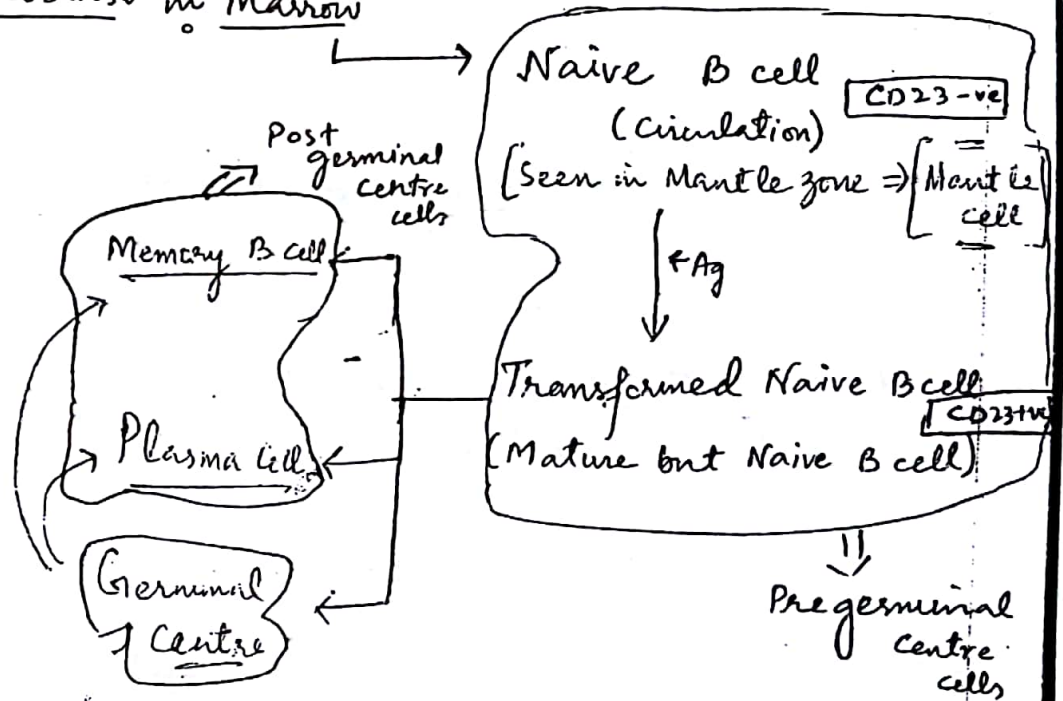 in Marrow
Naive B cell
CD23-ve
(Circulation)
[Seen in Mantle zone ⇒ [Mantle
cell]
← Ag
Transformed Naive B cell
CD23+ve
(Mature but Naive B cell)
Pregerminal
Centre
cells
Post
germinal
centre
cells
Memory B cell
Plasma Cell
Germinal
Centre